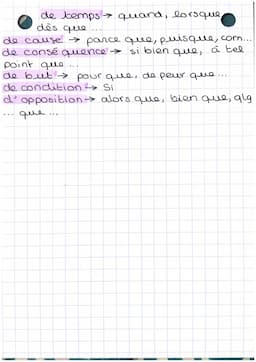 de temps → quand, lorsque,
dès que ...
de cause → parce que, puisque, com...
de conséquence → si bien que, à tel
point que ...
de but → pour que, de peur que ...
de condition → Si
d'opposition → alors que, bien que, qlq
... que ...